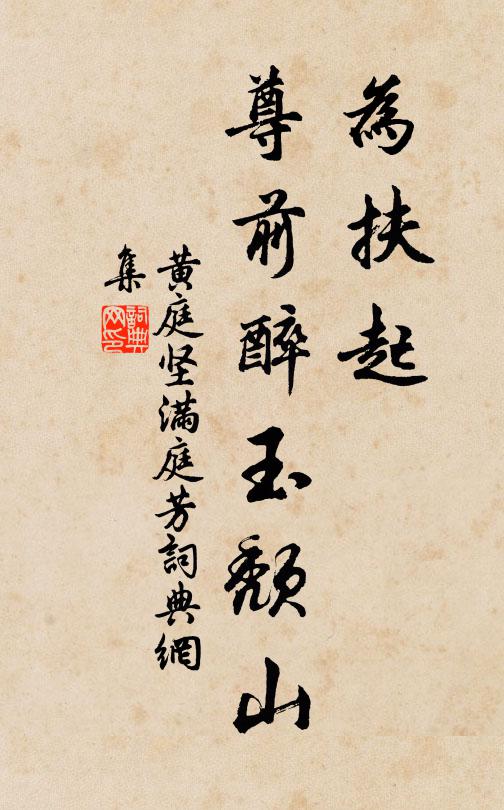 為扶起
尊前醉玉頹山
黄庭坚滿庭芳詞典網
集
詞典
网印